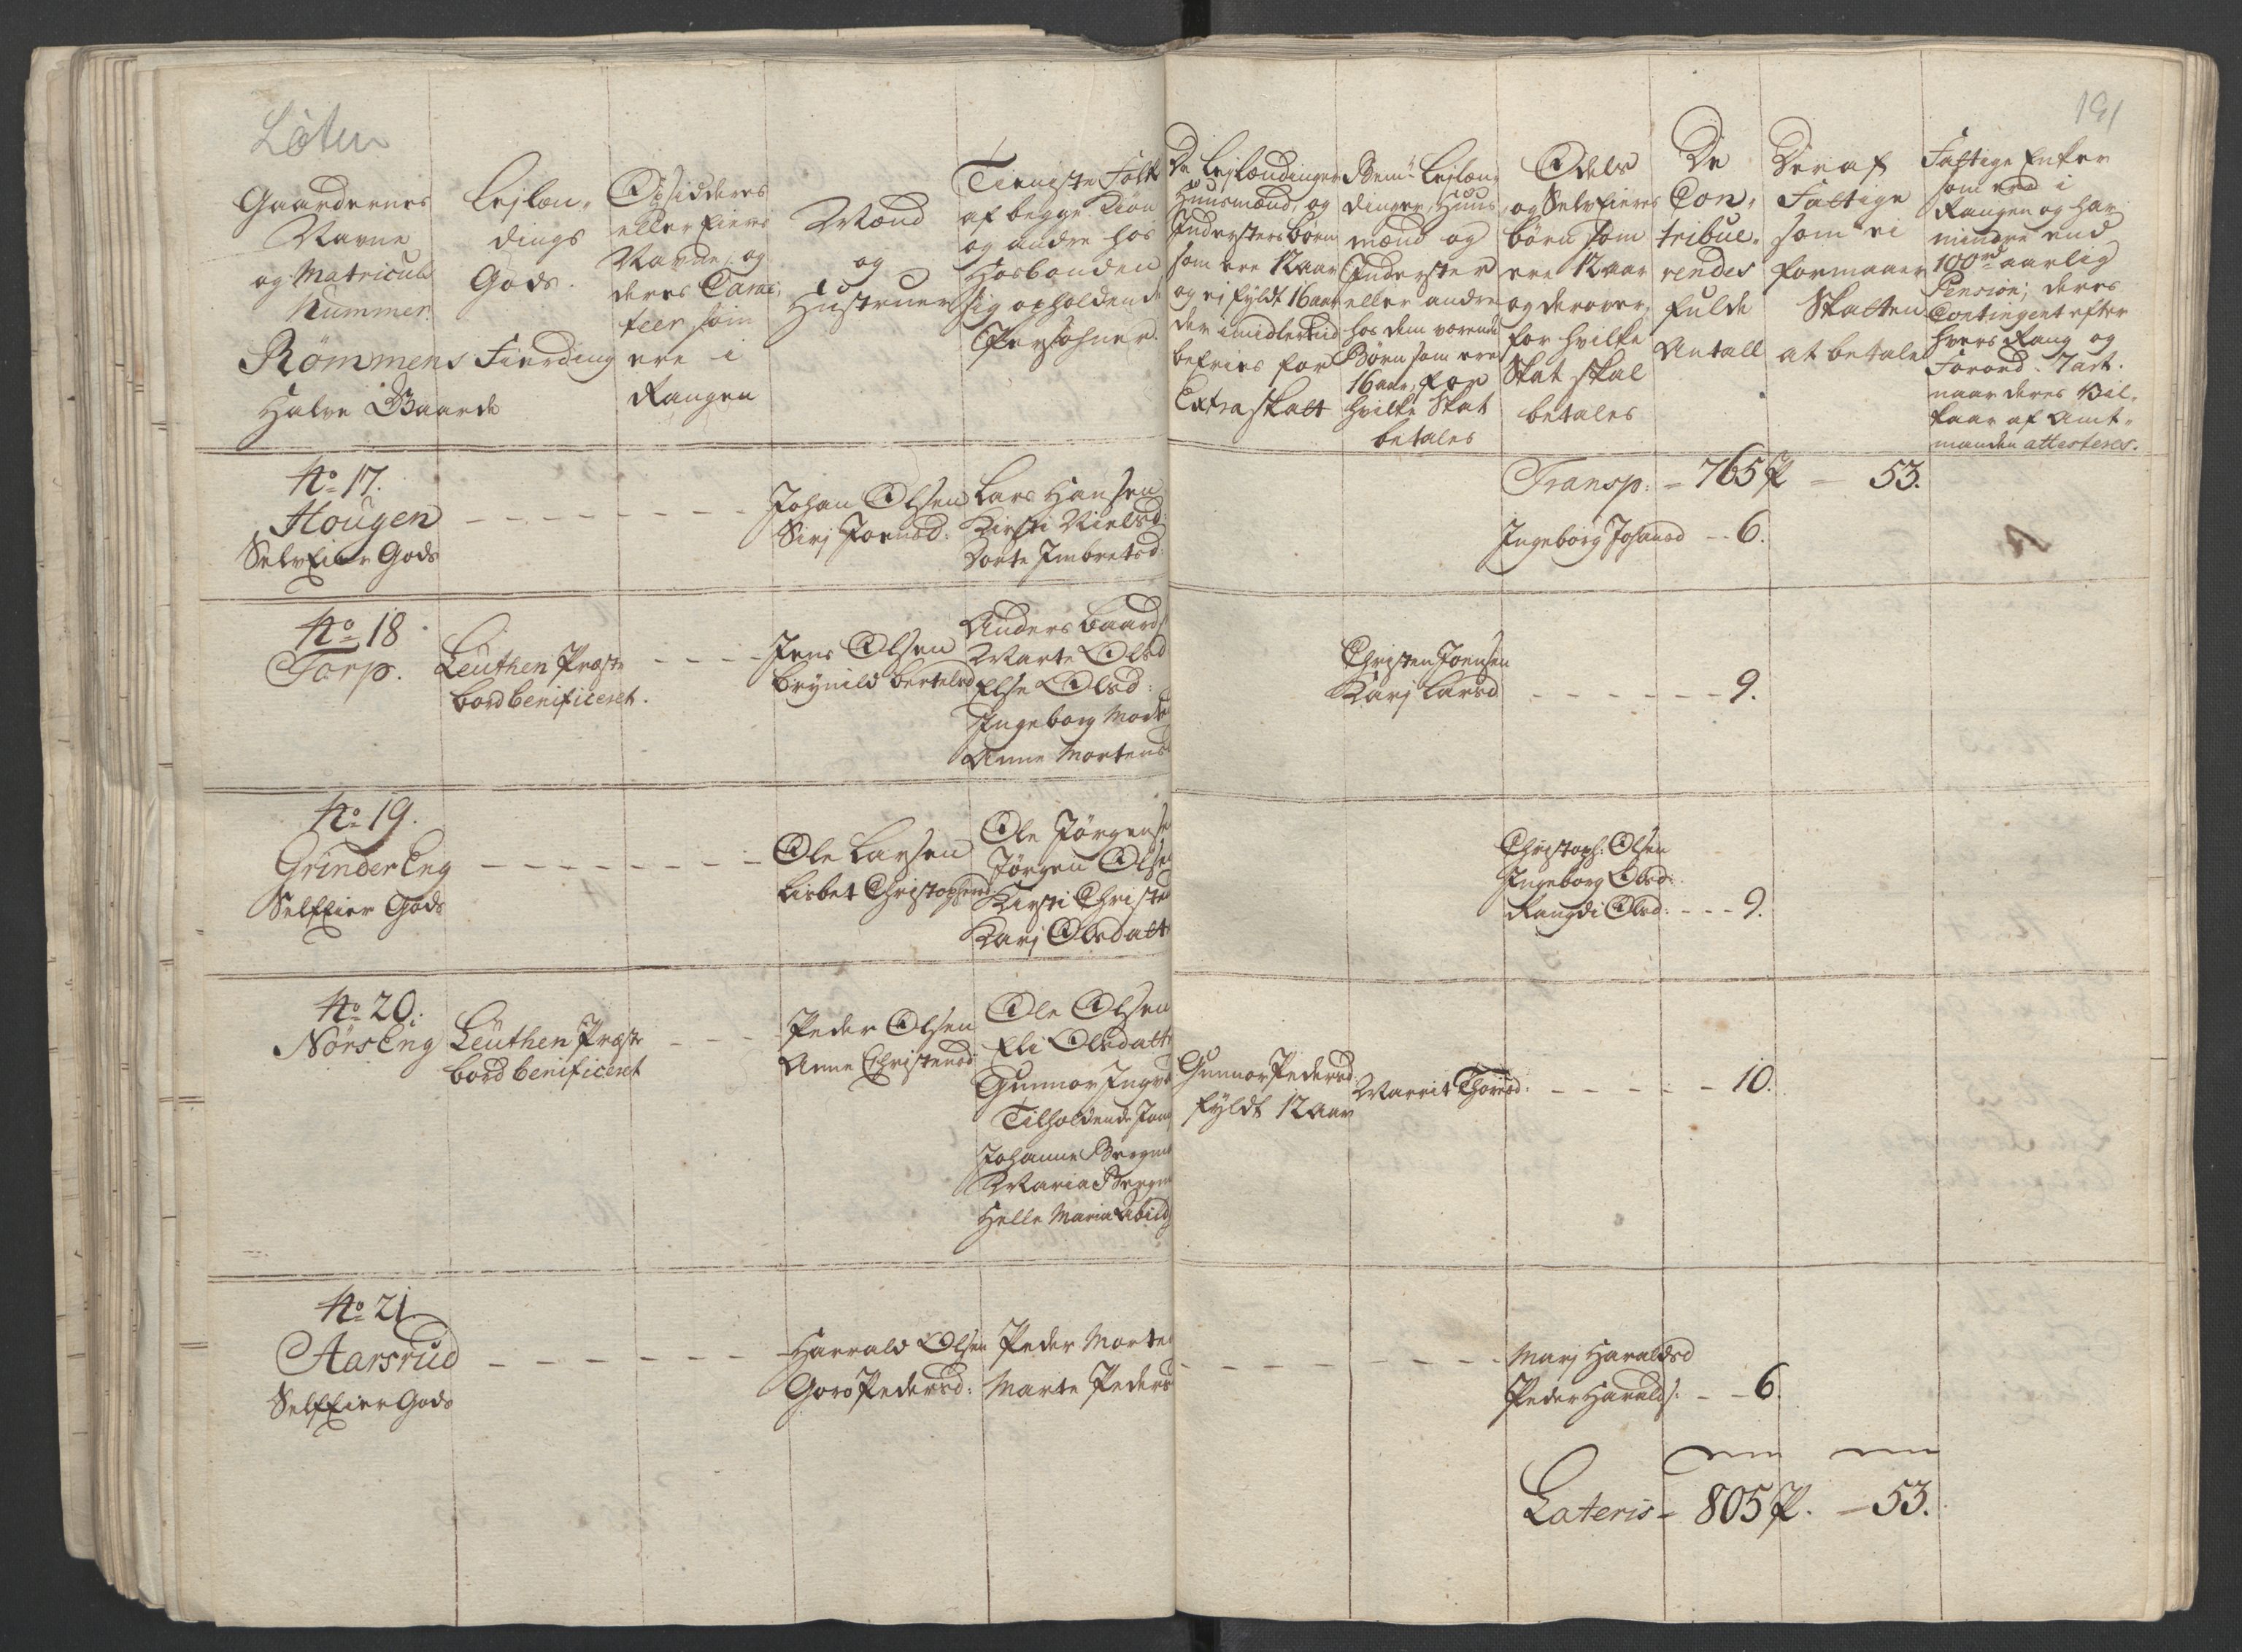 Löten
191
Gaardernes
Navne
og Matricul
Nummer.
Römmens Fierding
Halve Gaarde
Lejlæn-
dings
Gods.
Opsidderes
eller Eieres
Navne, og
deres Carac-
teer som
ere i
Rangen
Mænd
og
Hustruer
Tieniste Folk
af begge Kiön
og andre hos
Hosbonden
sig opholdende
Persohner.
De Lejlændinger
Huusmænd, og
Inderstersbörn
som ere 12 aar
og ej fyldt 16 aar
der imidlertiid
befries for
Extraskatt
Bem.te Lejlæn-
dinger, Huus
mænd og
Inderster
eller andre
hos dem værende
Börn som ere
16 aar, for
hvilke Skat
betales
Odels
og SelvEieres
börn som
ere 12 aar
og derover,
for hvilke
Skat skal
betales
De
Con-
tribue-
rendes
fulde
Antall
Deraf
Fattige
som ei
formaaer
Skatten
at betale
Fattige Enker
som ere i
Rangen og har
mindre end
100 rd aarlig
Pension; deres
Contingent efter
hvers Rang og
Forord: 7 art.
naar deres Vil-
kaar af Amt-
manden attesteres.
Transp: - 765 P - 53.
No 17.
Hougen
SelvEier Gods
Johan Olsen
Sirj Joensd:
Lars Hansen
Kirsti Nielsd:
Dorte Imbretsd:
Ingeborg Johansd - - 6.
No 18
Torp.
Leuthen Præste
bord benificeret.
Jens Olsen
Brynild Bertelsd
Anders Baards
Marte Olsd
Else Olsd:
Ingeborg Mort
Anne Mortens
Christen Joensen
Karj Larsd - - - - - - 9.
No 19.
Grinder Eng
SelfEier Gods
Ole Larsen
Lisbet Christophersd:
Ole Jørgense
Jørgen Olse
Kirsti Christe
Karj Olsdatt
Christoph: Olsen
Ingeborg Olsd:
Rangdi Olsd: - - - 9.
No 20.
NörsEng
Leuthen Præste
bord benificeret
Peder Olsen
Anne Christensd:
Ole Olsen
Eli Olsdatt
Gunnor
Tilholdende
Johanne
Maria
Helle Maria Abild
Gunnor Pedersd:
fyldt 12 aar
Marrit Thorsd: - - - - - 10.
No 21
Aarsrud
SelfEier Gods
Harrald Olsen
Goro Pedersd:
Peder Morte
Marte Peders
Marj Haraldsd
Peder Haralds: - - 6.
Lateris - 805 P. - 53.